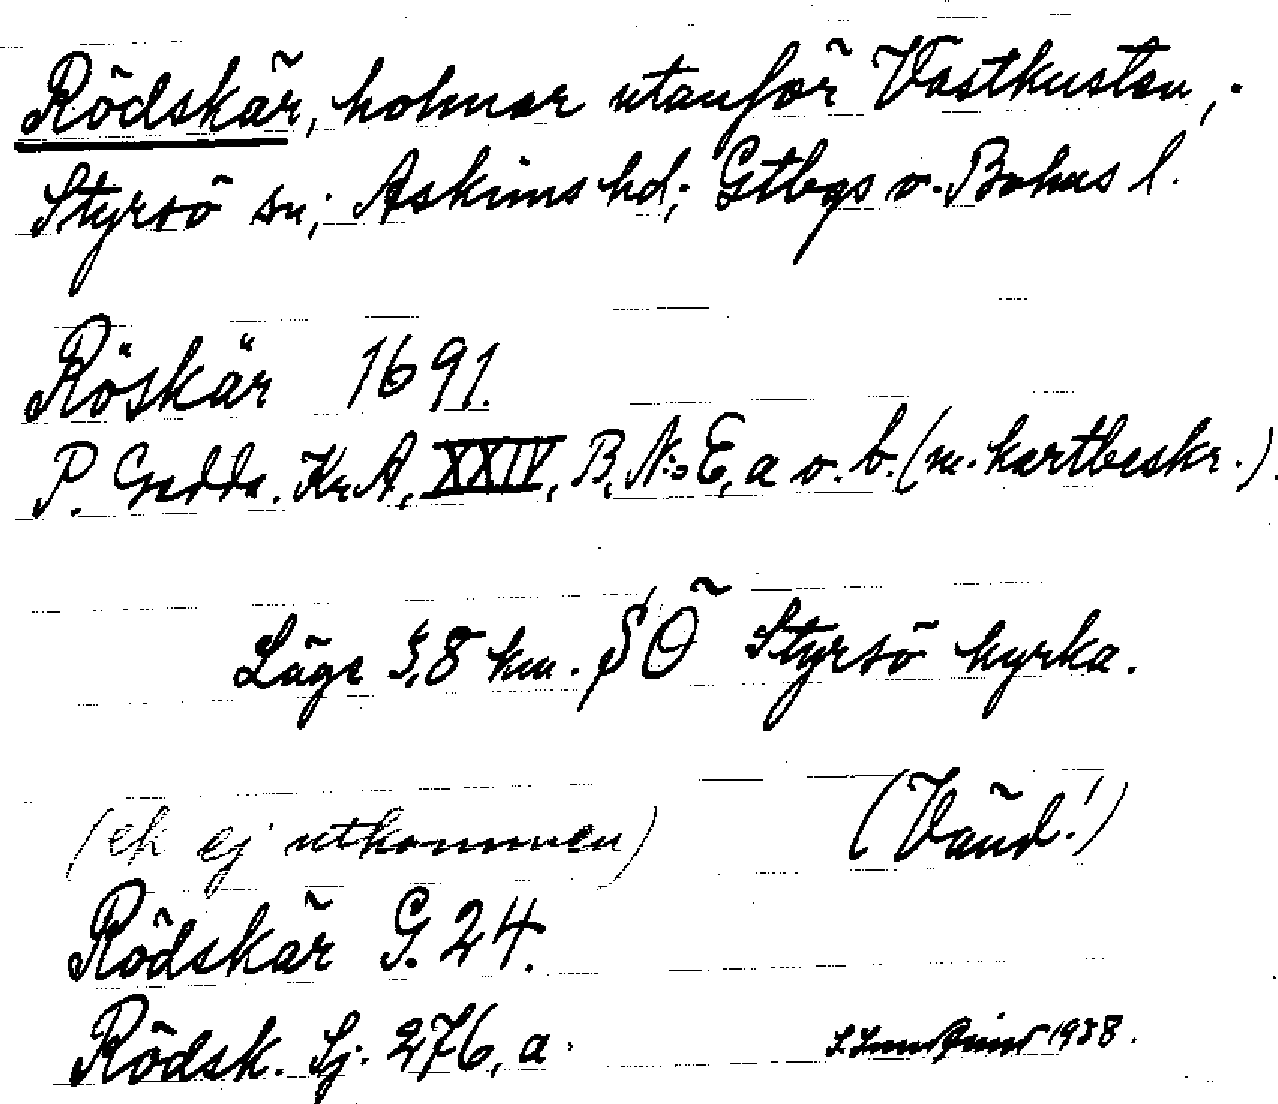 Rödskär, holmar utanför Västkusten,.
Styrsö sn; Askims hd; Gtbgs o. Bohus l.
Röskär 1691.
P. Gedda. Kr.A, XXIV, B, N:o E, a o. b. (m. kartbeskr.).
Läge 5,8 km. SÖ Styrsö kyrka.
(ek ej utkommen) (Vänd!)
Rödskär G. 24.
Rödsk. Sj. 276, a. 1938.